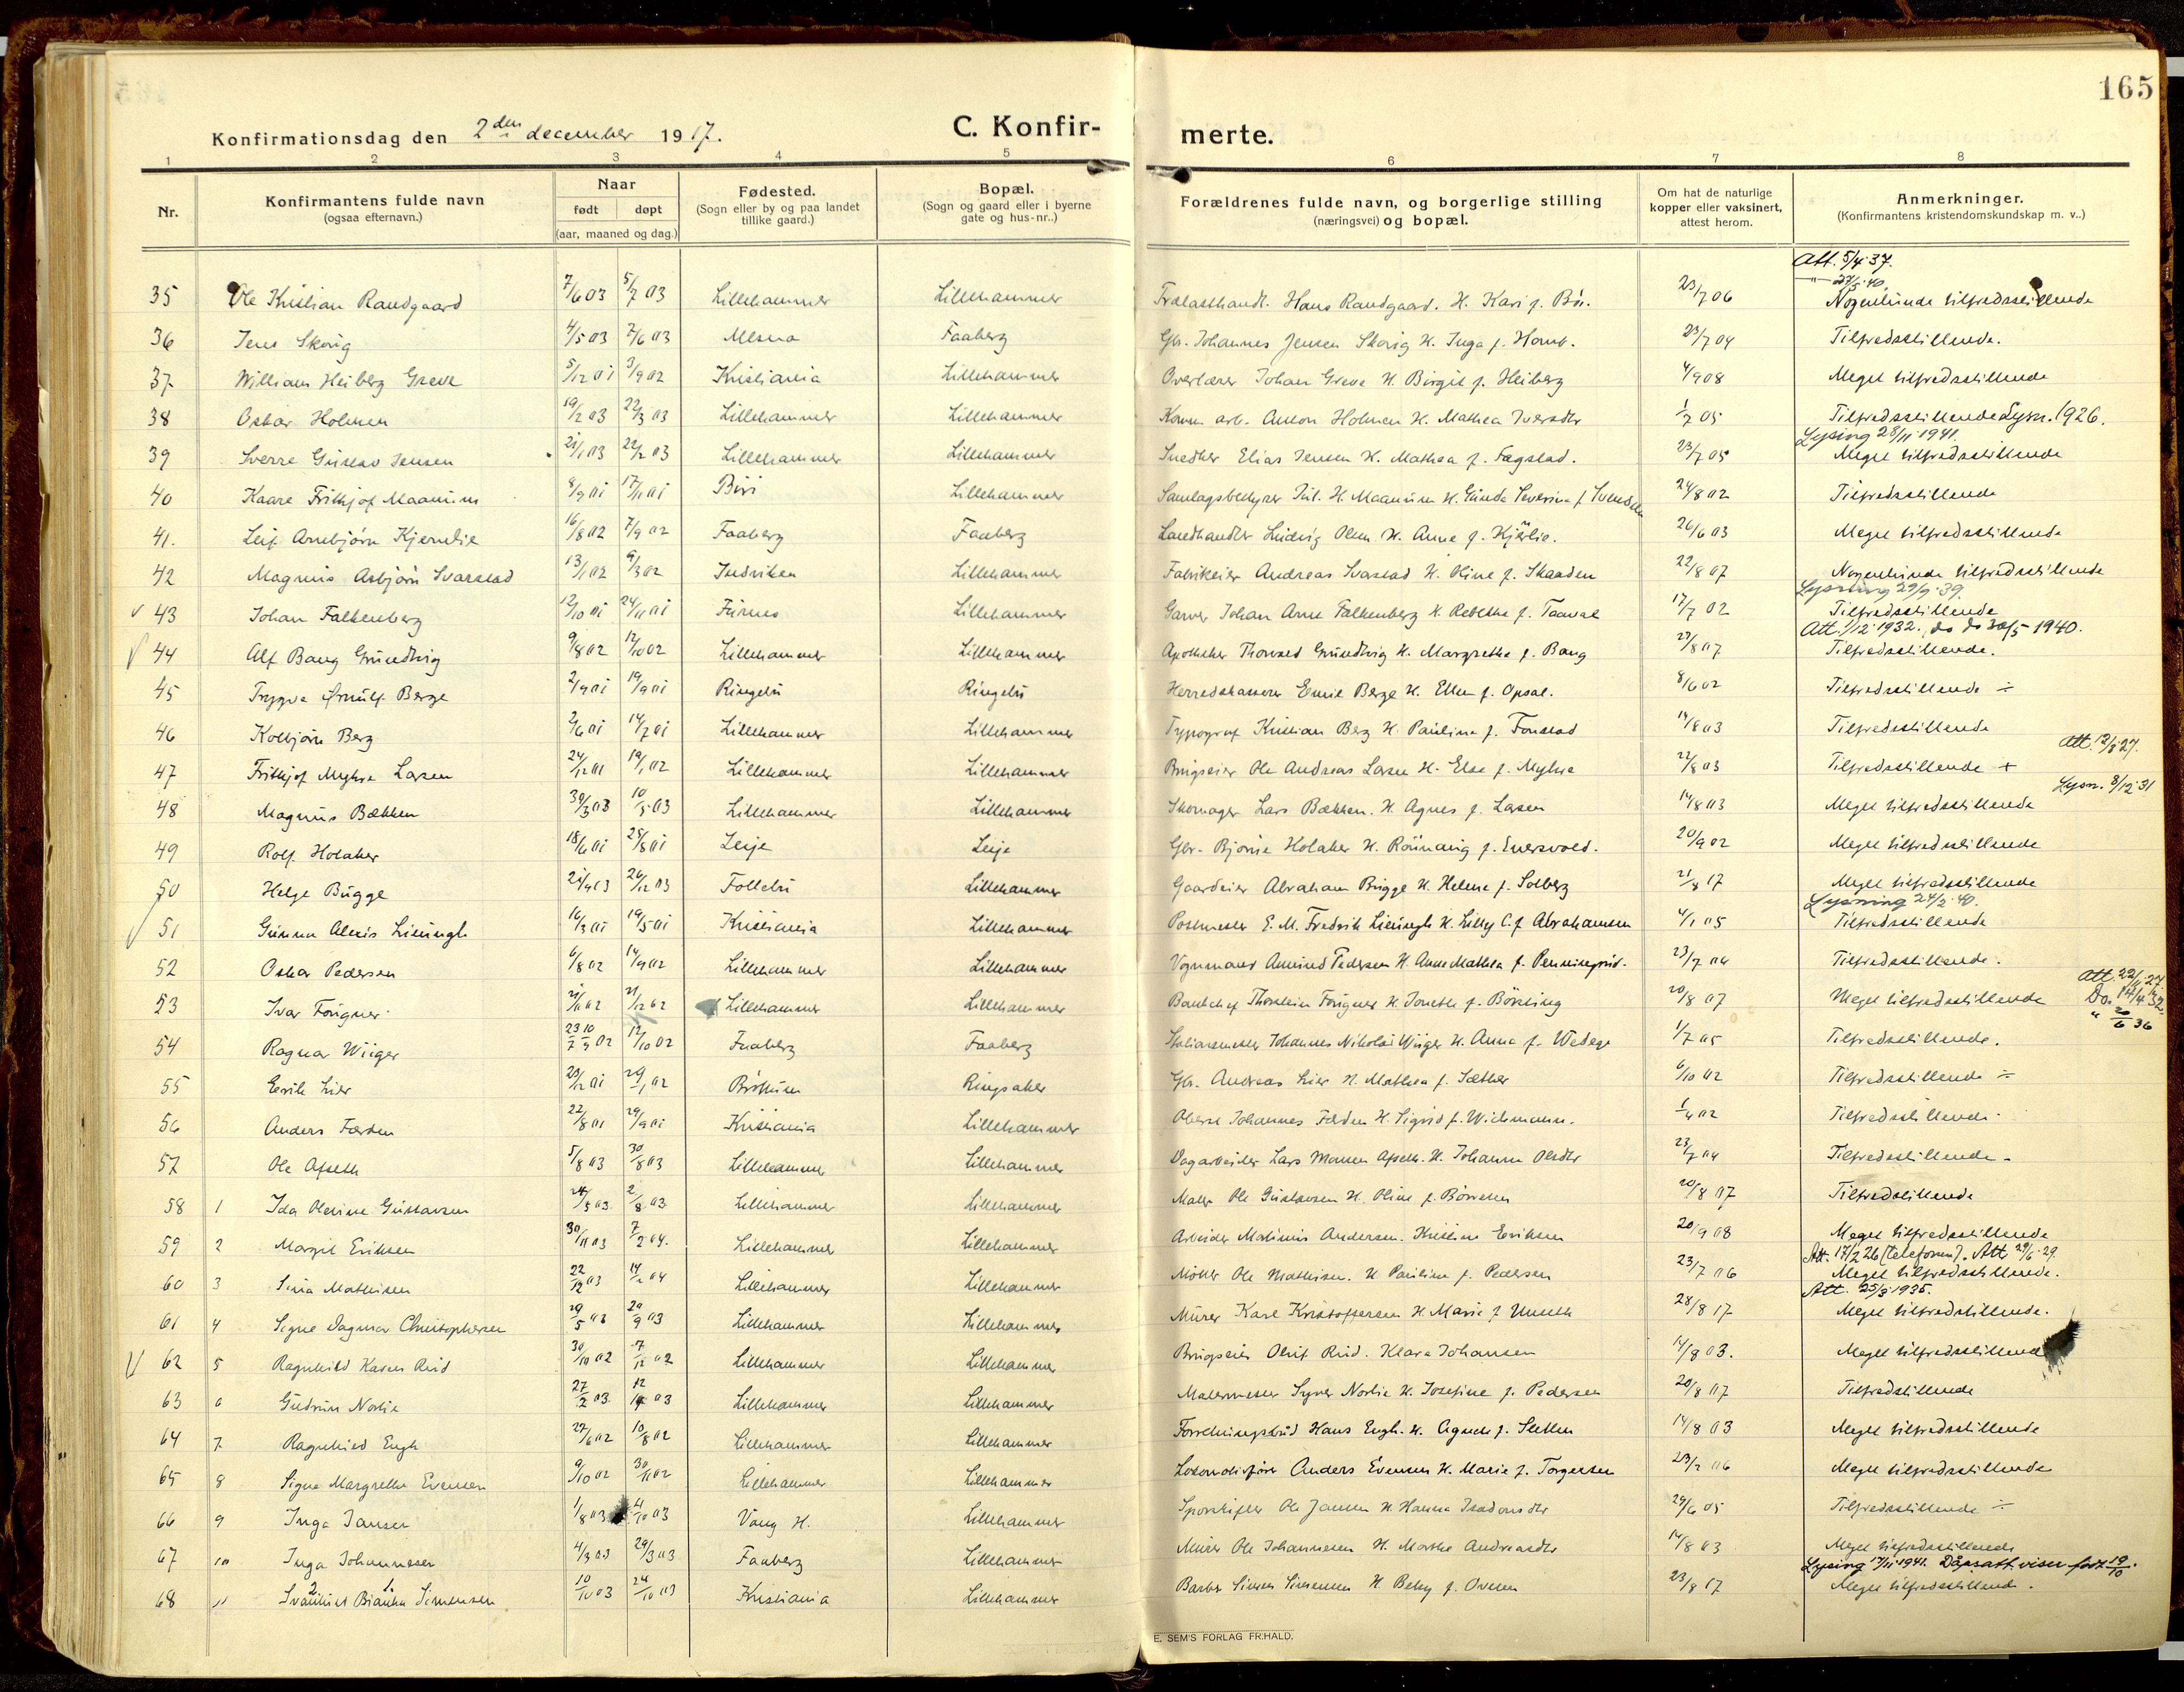 165
Konfirmationsdag den 2den december 1917. C. Konfir- merte.
1 2 3 4 5 6 7 8
Nr. Konfirmantens fulde navn (ogsaa efternavn.) Naar født døpt (aar, maaned og dag.) Fødested. (Sogn eller by og paa landet tillike gaard.) Bopæl. (Sogn og gaard eller i byerne gate og hus-nr..) Forældrenes fulde navn, og borgerlige stilling (næringsvei) og bopæl. Om hat de naturlige kopper eller vaksinert, attest herom. Anmerkninger. (Konfirmantens kristendomskundskap m. v..)
Att. 5/4 37.
35 Ole Kristian Randgaard 7/6 03 5/7 03 Lillehammer Lillehammer Trælasthandl. Hans Randgaard. H. Kari f. Bø. 23/7 06 Nogenlunde tilfredsstillende
36 Jens Skorig 4/5 03 7/6 03 Mesna Faaberg Gbr. Johannes Jensen Skorig H. Inga f. Homb. 23/7 04 Tilfredsstillende.
37 William Heiberg Greve 5/12 01 3/9 02 Kristiania Lillehammer Overlærer Johan Greve H. Birgit f. Heiberg 4/9 08 Meget tilfredsstillende
38 Oskar Holmen 19/2 03 22/3 03 Lillehammer Lillehammer Komm. arb. Anton Holmen H. Mathea Iversdtr 1/7 05 Tilfredsstillende Lysn. 1926.
Lysing 28/11 1941.
39 Sverre Gustav Jensen 21/1 03 22/2 03 Lillehammer Lillehammer Snedker Elias Jensen H. Mathea f. Fagstad. 23/7 05 Meget tilfredsstillende
40 Kaare Frithjof Maanum 8/9 01 17/11 01 Biri Lillehammer Samlagsbestyrer Jul. H. Maanum H. Gunda Severine f. Svendsen 24/8 02 Tilfredsstillende
41. Leif Arnebjørn Kjernlie 16/8 02 7/9 02 Faaberg Faaberg Landhandler Ludvig Olsen H. Anne f. Kjernlie. 26/6 03 Meget tilfredsstillende
42 Magnus Asbjørn Svarstad 13/1 02 9/3 02 Lillehammer Fabrikeier Andreas Svarstad H. Oline f. Skaaden 22/8 07 Nogenlunde tilfredsstillende
Lysning 29/9 39.
43 Johan Falkenberg 12/10 01 24/11 01 Furnes Lillehammer Garver Johan Arnt Falkenberg H. Rebekka f. 17/7 02 Tilfredsstillende
Att. 1/12 1932. do do 30/5 1940.
44 Alf Bang Grundtvig 9/8 02 12/10 02 Lillehammer Lillehammer Apotheker Thorvald Grundtvig H. Margrethe f. Bang 27/8 07 Tilfredsstillende.
45 Trygve Ørnulf Berge 2/9 01 19/9 01 Ringebu Ringebu Herredskasserer Emil Berge H. Ellen f. Opsal. 8/6 02 Tilfredsstillende ÷
46 Kolbjørn Berg 2/6 01 14/7 01 Lillehammer Lillehammer Typograf Kristian Berg H. Pauline f. Fonstad 14/8 03 Tilfredsstillende
Att. 12/8 27.
47 Frithjof Myhre Larsen 24/12 01 19/1 02 Lillehammer Lillehammer Brugseier Ole Andreas Larsen H. Else f. Myhre 22/8 03 Tilfredsstillende +
Lysn. 8/12 31
48 Magnus Bækken 30/3 03 10/5 03 Lillehammer Lillehammer Skomager Lars Bækken. H. Agnes f. Larsen 14/8 03 Meget tilfredsstillende
49 Rolf Holaker 18/6 01 25/8 01 Lesje Lesje Gbr. Bjørne Holaker H. Rønnaug f. Enersvold. 20/9 02 Meget tilfredsstillende
50 Helge Bugge 21/9 03 26/12 03 Follebu Lillehammer Gaardeier Abraham Bugge H. Helene f. Solberg 21/8 17 Meget tilfredsstillende
Lysning 24/2 40.
51 Gunnar Alexis Lieungh 16/3 01 19/5 01 Kristiania Lillehammer Postmester E. M. Fredrik Lieungh H. Lilly C. f. Abrahamsen 4/1 05 Tilfredsstillende
52 Oskar Pedersen 6/8 02 14/9 02 Lillehammer Lillehammer Vognmand Amund Pedersen H. Anne Mathea f. Penningrud. 23/7 04 Tilfredsstillende.
Att. 22/11 27.
53 Ivar Fougner 21/11 02 21/12 02 Lillehammer Lillehammer Bankchef Thorstein Fougner H. Jonette f. Børking 20/8 07 Meget tilfredsstillende Do. 14/4 32
" 20/6 36
54 Ragnar Wiiger 23/7 10/9 02 12/10 02 Faaberg Faaberg Stationsmester Johannes Nikolai Wiiger H. Anna f. Wedege 1/7 05 Tilfredsstillende.
55 Eerik Lier 23/12 01 29/1 02 Brøttum Ringsaker Gbr. Andreas Lier H. Mathea f. Sæther 6/10 02 Tilfredsstillende ÷
56 Anders Færden 22/8 01 29/9 01 Kristiania Lillehammer Oberst Johannes Færden H. Sigrid f. Wichmann. 1/4 02 Tilfredsstillende.
57 Ole Afseth 5/8 03 30/8 03 Lillehammer Lillehammer Dagarbeider Lars Monsen Afseth. H. Johanne Olsdtr 23/7 04 Tilfredsstillende.
58 1 Ida Olerine Gustavsen 24/5 03 2/8 03 Lillehammer Lillehammer Maler Ole Gustavsen H. Oline f. Børresen 20/8 07 Tilfredsstillende
59 2 Margit Eriksen 30/11 03 7/2 04. Lillehammer Lillehammer Arbeider Martinius Andersen. Kristine Eriksen 20/9 08 Meget tilfredsstillende
Att. 17/2 26 (telefonen). Att 29/6 29.
60 3 Signa Mathisen 22/12 03 14/2 04 Lillehammer Lillehammer Møller Ole Mathisen. H. Pauline f. Pedersen 23/7 06 Meget tilfredsstillende.
Att. 25/3 1935.
61 4 Signe Dagmar Christophersen 29/5 03 20/9 03 Lillehammer Lillehammer Murer Karl Kristoffersen H. Marie f. Unseth 28/8 17 Meget tilfredsstillende.
62 5 Ragnhild Karen Rud 30/10 02 7/12 02 Lillehammer Lillehammer Brugseier Oluf Rud. Klara Johansen 14/8 03. Meget tilfredsstillende
63 6 Gudrun Norlie 27/2 03 12/4 03 Lillehammer Lillehammer Malermester Syver Norlie H. Josefine f. Pedersen 20/8 07 Tilfredsstillende
64 7 Ragnhild Engh 27/6 02 10/8 02 Lillehammer Lillehammer Forretningsbud Hans Engh. H. Agnete f. Sletten 14/8 03 Meget tilfredsstillende
65 8 Signe Margrethe Evensen 9/10 02 30/11 02 Lillehammer Lillehammer Lokomotivfører Anders Evensen H. Marie f. Torgersen 23/7 06 Meget tilfredsstillende
66 9 Inga Jansen 1/8 03 4/10 03 Vang H. Lillehammer Sporskifter Ole Jansen H. Hanna Isadorsdtr 29/6 05 Tilfredsstillende ÷
67 10 Inga Johannesen 4/3 03 29/3 03 Faaberg Lillehammer Murer Ole Johannesen H. Marthe Andreasdtr 14/8 03 Meget tilfredsstillende
Lysing 17/11 1941. Dåpsatt. viser født 19/10.
68 11 Svanhild Bianka Simensen 10/10 03 24/10 03 Kristiania Lillehammer Barber Simen Simensen H. Betsy f. Ovesen 23/8 17 Meget tilfredsstillende.
E. SEM'S FORLAG FR:HALD.